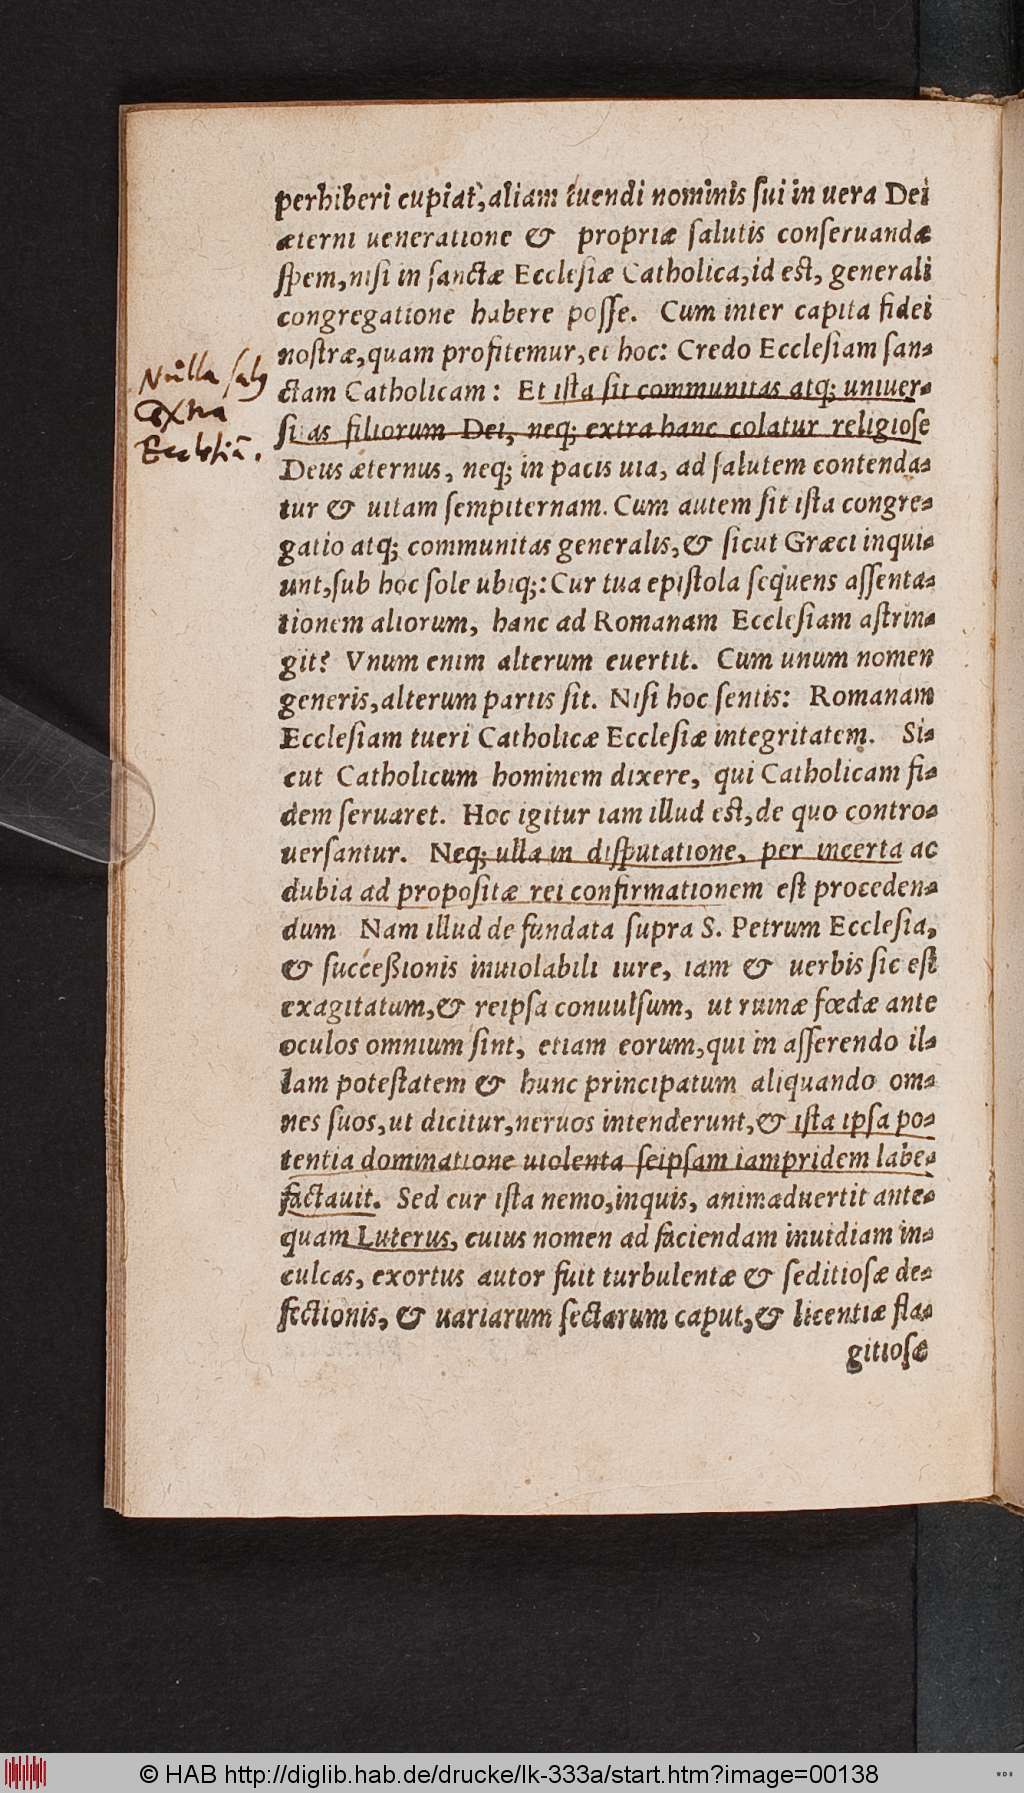 perhiberi cupiat, aliam tuendi nominis sui in uera Dei
æterni ueneratione & propriæ salutis conseruandæ
spem, nisi in sanctæ Ecclesiæ Catholica, id est, generali
congregatione habere posse. Cum inter capita fidei
nostræ, quam profitemur, et hoc: Credo Ecclesiam san-
ctam Catholicam: Et ista sit communitas atq; uniuer-
sitas filiorum Dei, neq; extra hanc colatur religiose
Deus æternus, neq; in pacis uia, ad salutem contenda-
tur & uitam sempiternam. Cum autem sit ista congre-
gatio atq; communitas generalis, & sicut Græci inqui-
unt, sub hoc sole ubiq;: Cur tua epistola sequens assenta-
tionem aliorum, hanc ad Romanam Ecclesiam astrin-
git? Vnum enim alterum euertit. Cum unum nomen
generis, alterum partis sit. Nisi hoc sentis: Romanam
Ecclesiam tueri Catholicæ Ecclesiæ integritatem. Si-
cut Catholicum hominem dixere, qui Catholicam fi-
dem seruaret. Hoc igitur iam illud est, de quo contro-
uersantur. Neq; ulla in disputatione, per incerta ac
dubia ad propositæ rei confirmationem est proceden-
dum Nam illud de fundata supra S. Petrum Ecclesia,
& succeßionis inuiolabili iure, iam & uerbis sic est
exagitatum, & reipsa conuulsum, ut ruinæ fœdæ ante
oculos omnium sint, etiam eorum, qui in asserendo il-
lam potestatem & hunc principatum aliquando om-
nes suos, ut dicitur, neruos intenderunt, & ista ipsa po-
tentia dominatione uiolenta seipsam iampridem labe-
factauit. Sed cur ista nemo, inquis, animaduertit ante-
quam Luterus, cuius nomen ad faciendam inuidiam in-
culcas, exortus autor fuit turbulentæ & seditiosæ de-
fectionis, & uariarum sectarum caput, & licentiæ fla-
gitiosæ
Nulla salus
extra
Ecclesiā.
© HAB http://diglib.hab.de/drucke/lk-333a/start.htm?image=00138